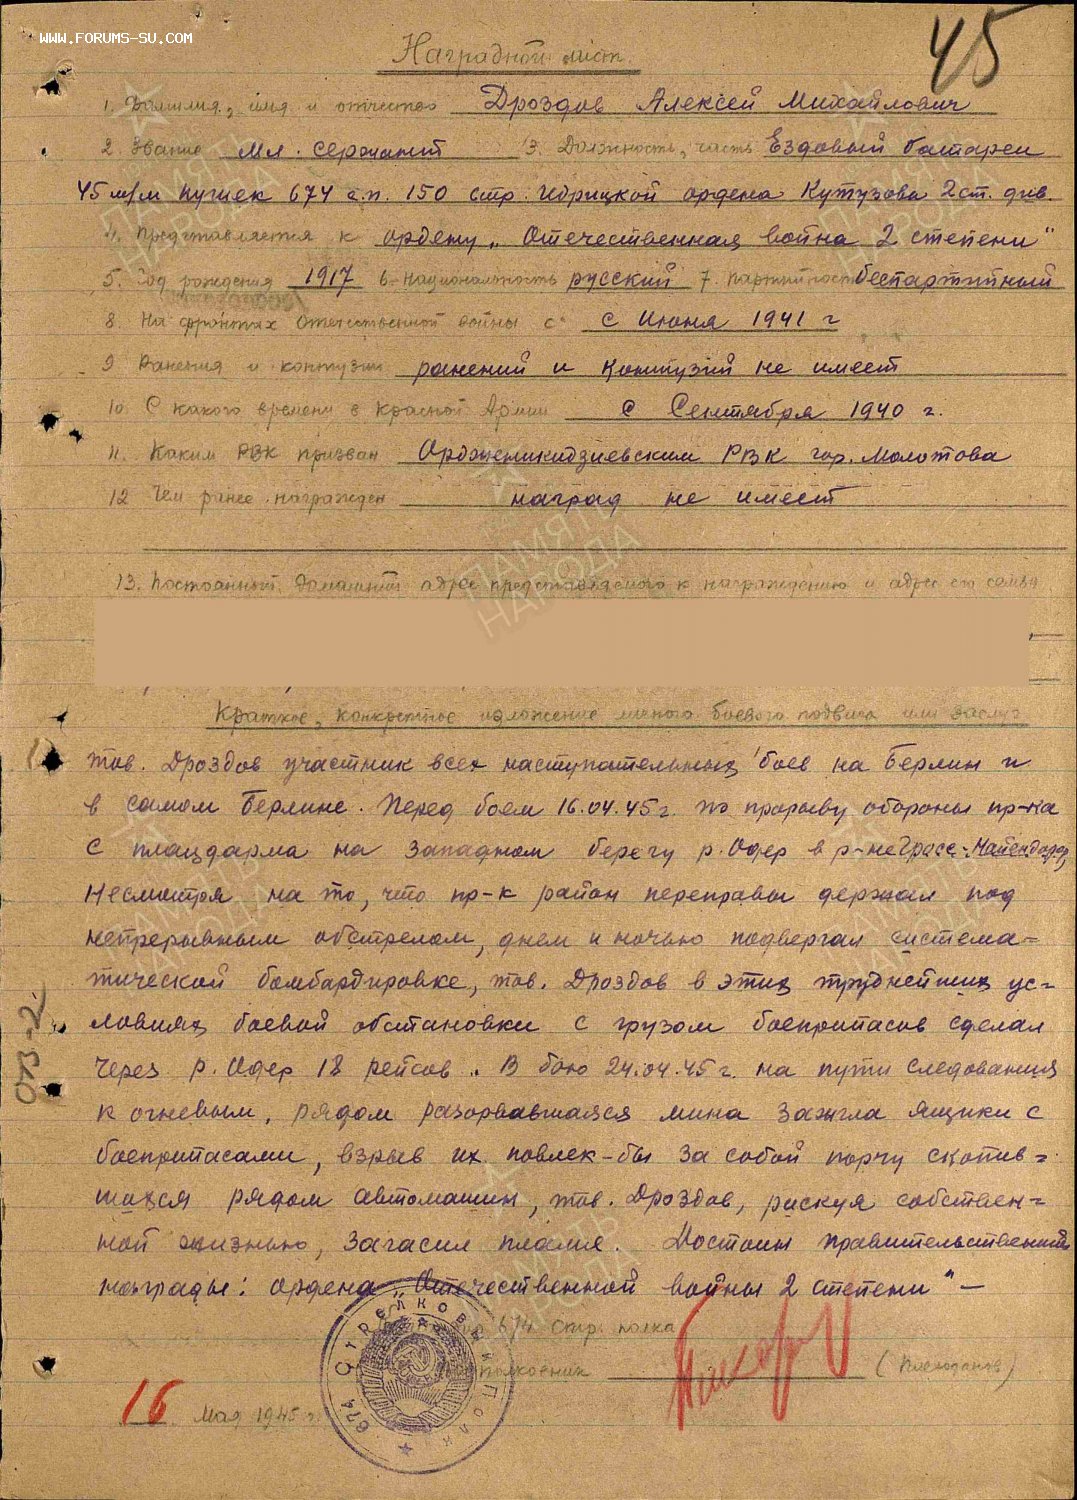 WWW.FORUMS-SU.COM
45
Наградной лист
1. Фамилия, имя и отчество Дроздов Алексей Михайлович
2. Звание мл. сержант 3. Должность, часть Ездовый батареи
45 м/м пушек 674 с.п. 150 стр. Идрицкой ордена Кутузова 2 ст. див.
4. Представляется к ордену „Отечественная война 2 степени"
5. Год рождения 1917 6. Национальность русский 7. Партийность беспартийный
8. На фронтах Отечественной войны с с Июня 1941 г
9 Ранения и контузии ранений и контузий не имеет
10. С какого времени в Красной Армии с Сентября 1940 г.
11. Каким РВК призван Орджоникидзиевским РВК гор. Молотова
12 Чем ранее награжден наград не имеет
13. Постоянный домашний адрес представляемого к награждению и адрес его семьи
Краткое, конкретное изложение личного боевого подвига или заслуг
тов. Дроздов участник всех наступательных боев на Берлин и
в самом Берлине. Перед боем 16.04.45 г. по прорыву обороны пр-ка
с плацдарма на западном берегу р. Одер в р-не Гросс-
Несмотря на то, что пр-к район переправы держал под
непрерывным обстрелом, днем и ночью подвергал система-
тической бомбардировке, тов. Дроздов в этих труднейших ус-
ловиях боевой обстановки с грузом боеприпасов сделал
через р. Одер 18 рейсов. В бою 24.04.45 г. на пути следования
к огневым, рядом разорвавшаяся мина зажгла ящики с
боеприпасами, взрыв их повлек-бы за собой порчу скопив-
шихся рядом автомашин, тов. Дроздов, рискуя собствен-
ной жизнью, загасил пламя. Достоин правительственной
награды: ордена „Отечественной войны 2 степени" —
674 стр. полка
полковник (Плеходанов)
16 Мая 1945 г.
674 Стрелковый Полк
ПАМЯТЬ НАРОДА